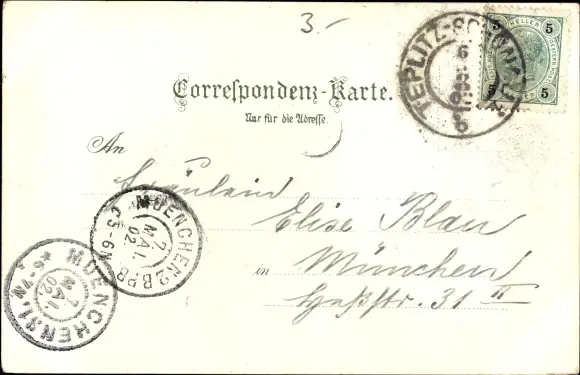 3.-
5 HELLER 5
5 5
TEPLITZ-SCHÖNAU
6
Correspondenz-Karte.
Nur für die Adresse.
An
Fräulein
Elise Blau
in München
Heßstr. 31 II
MUENCHEN 2 B.P.B
7 MAI. 02
5-6N
MUENCHEN 31
7 MAI. 02